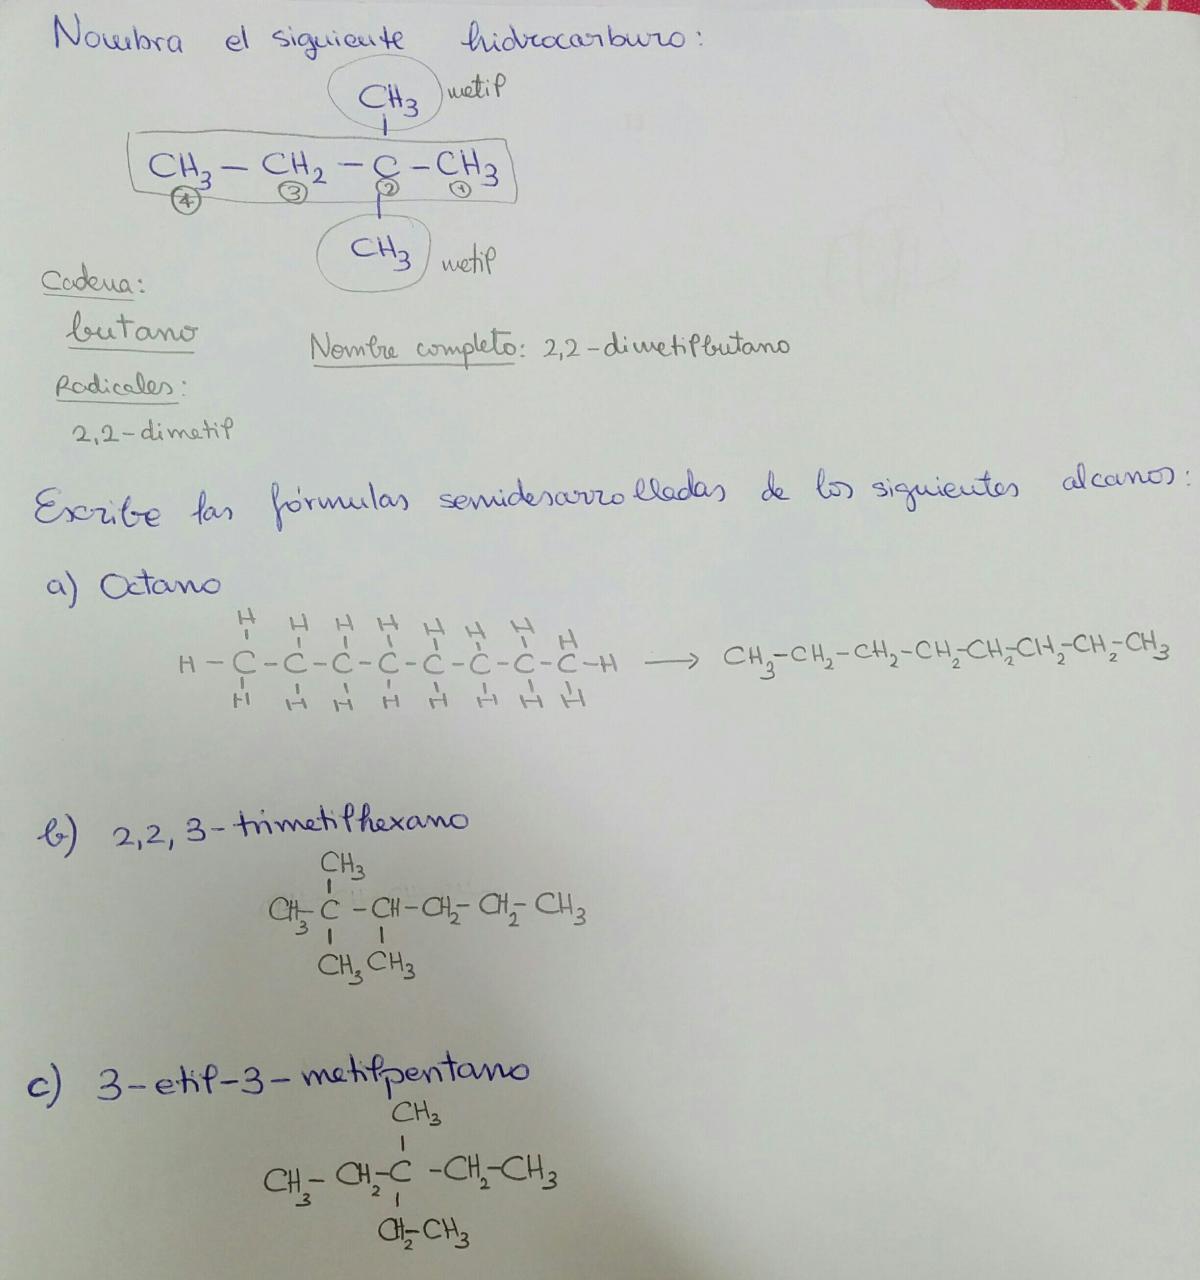 Nombra el siguiente hidrocarburo:
CH3 metil
CH3 – CH2 – C – CH3
4 3 2 1
CH3 metil
Cadena:
butano
Nombre completo: 2,2-dimetilbutano
Radicales:
2,2-dimetil
Escribe las fórmulas semidesarrolladas de los siguientes alcanos:
a) Octano
H H H H H H H H
H – C – C – C – C – C – C – C – C – H → CH3 – CH2 – CH2 – CH2 – CH2 – CH2 – CH2 – CH3
H H H H H H H H
b) 2,2,3-trimetilhexano
CH3
CH3 – C – CH – CH2 – CH2 – CH3
CH3 CH3
c) 3-etil-3-metilpentano
CH3
CH3 – CH2 – C – CH2 – CH3
CH2 – CH3